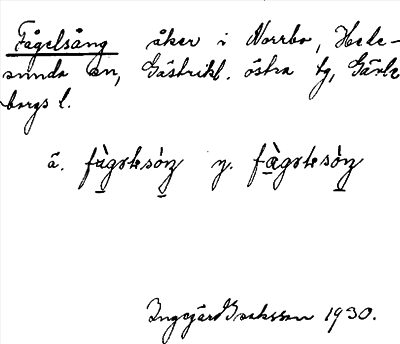 Fågelsång åker i Norrbo, Hede-
sunda sn, Gästrikl. östra tg, Gävle
borgs l.
ä. fàgₒlesòŋ y. fàgₒlesòŋ
Ingegärd Isaksson 1930.